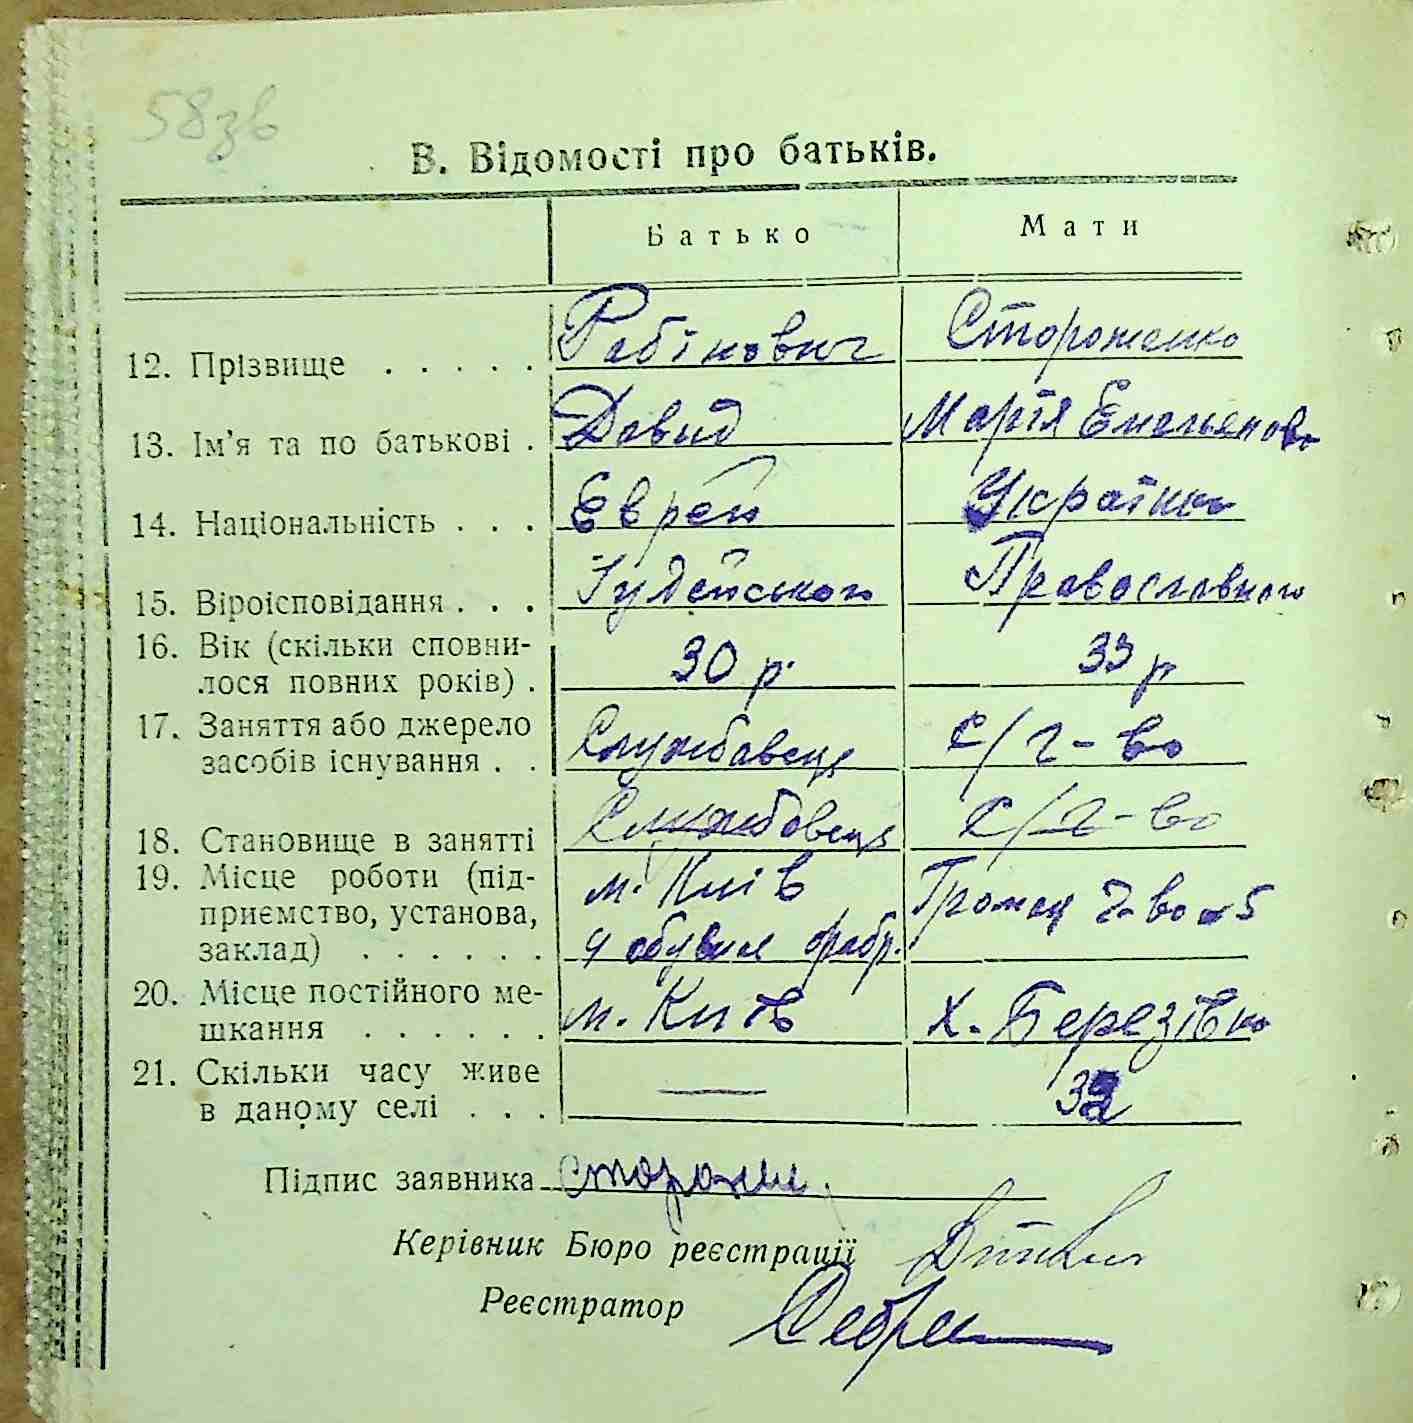 58зв
В. Відомості про батьків.
Батько Мати
12. Прізвище . . . . . Рабінович Стороженко
13. Ім'я та по батькові . Давид Марія Емельянова
14. Національність . . . Еврей Українка
15. Віроісповідання . . . Іудейського Православного
16. Вік (скільки сповни-
лося повних років) . 30 р. 33 р
17. Заняття або джерело
засобів існування . . Службавець с/г-во
18. Становище в занятті Службовець с/г-во
19. Місце роботи (під- м. Київ
приємство, установа, Громац г-во 5
заклад) . . . . . . фабр.
20. Місце постійного ме-
шкання . . . . . . м. Київ х. Березівка
21. Скільки часу живе
в даному селі . . . —
Підпис заявника Сторожен.
Керівник Бюро реєстрації
Реєстратор